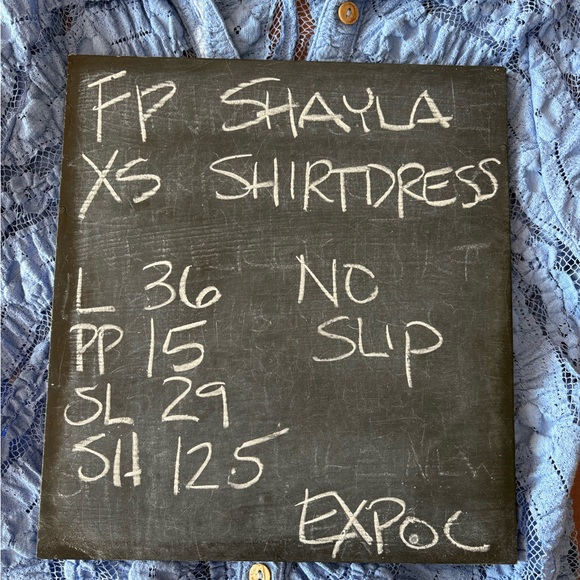 FP SHAYLA
XS SHIRTDRESS
L 36 NO
PP 15 SLIP
SL 29
SH 12.5
EXPOC